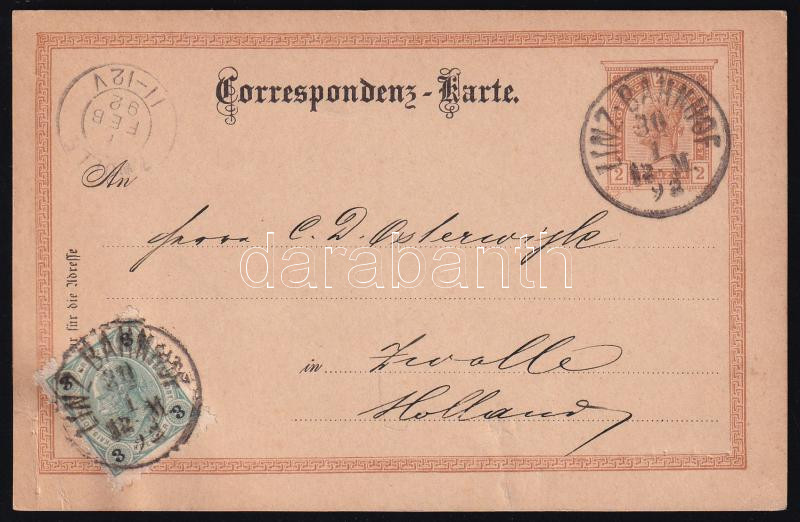 Correspondenz-Karte.
LINZ-BAHNHOF
30
1
12 M.
92
2 2
11-12V
92
FEB
1
An
Herrn C. D. Osterwijk
darabanth
für die Adresse
in Zwolle
Holland
LINZ-BAHNHOF
30
1
12 M
92
3 3 3 3